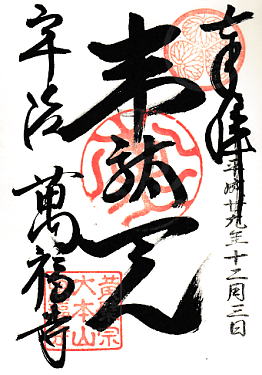 奉拝
平成廿九年十二月三日
韋駄天
宇治 萬福寺
黄檗宗
大本山
萬福寺